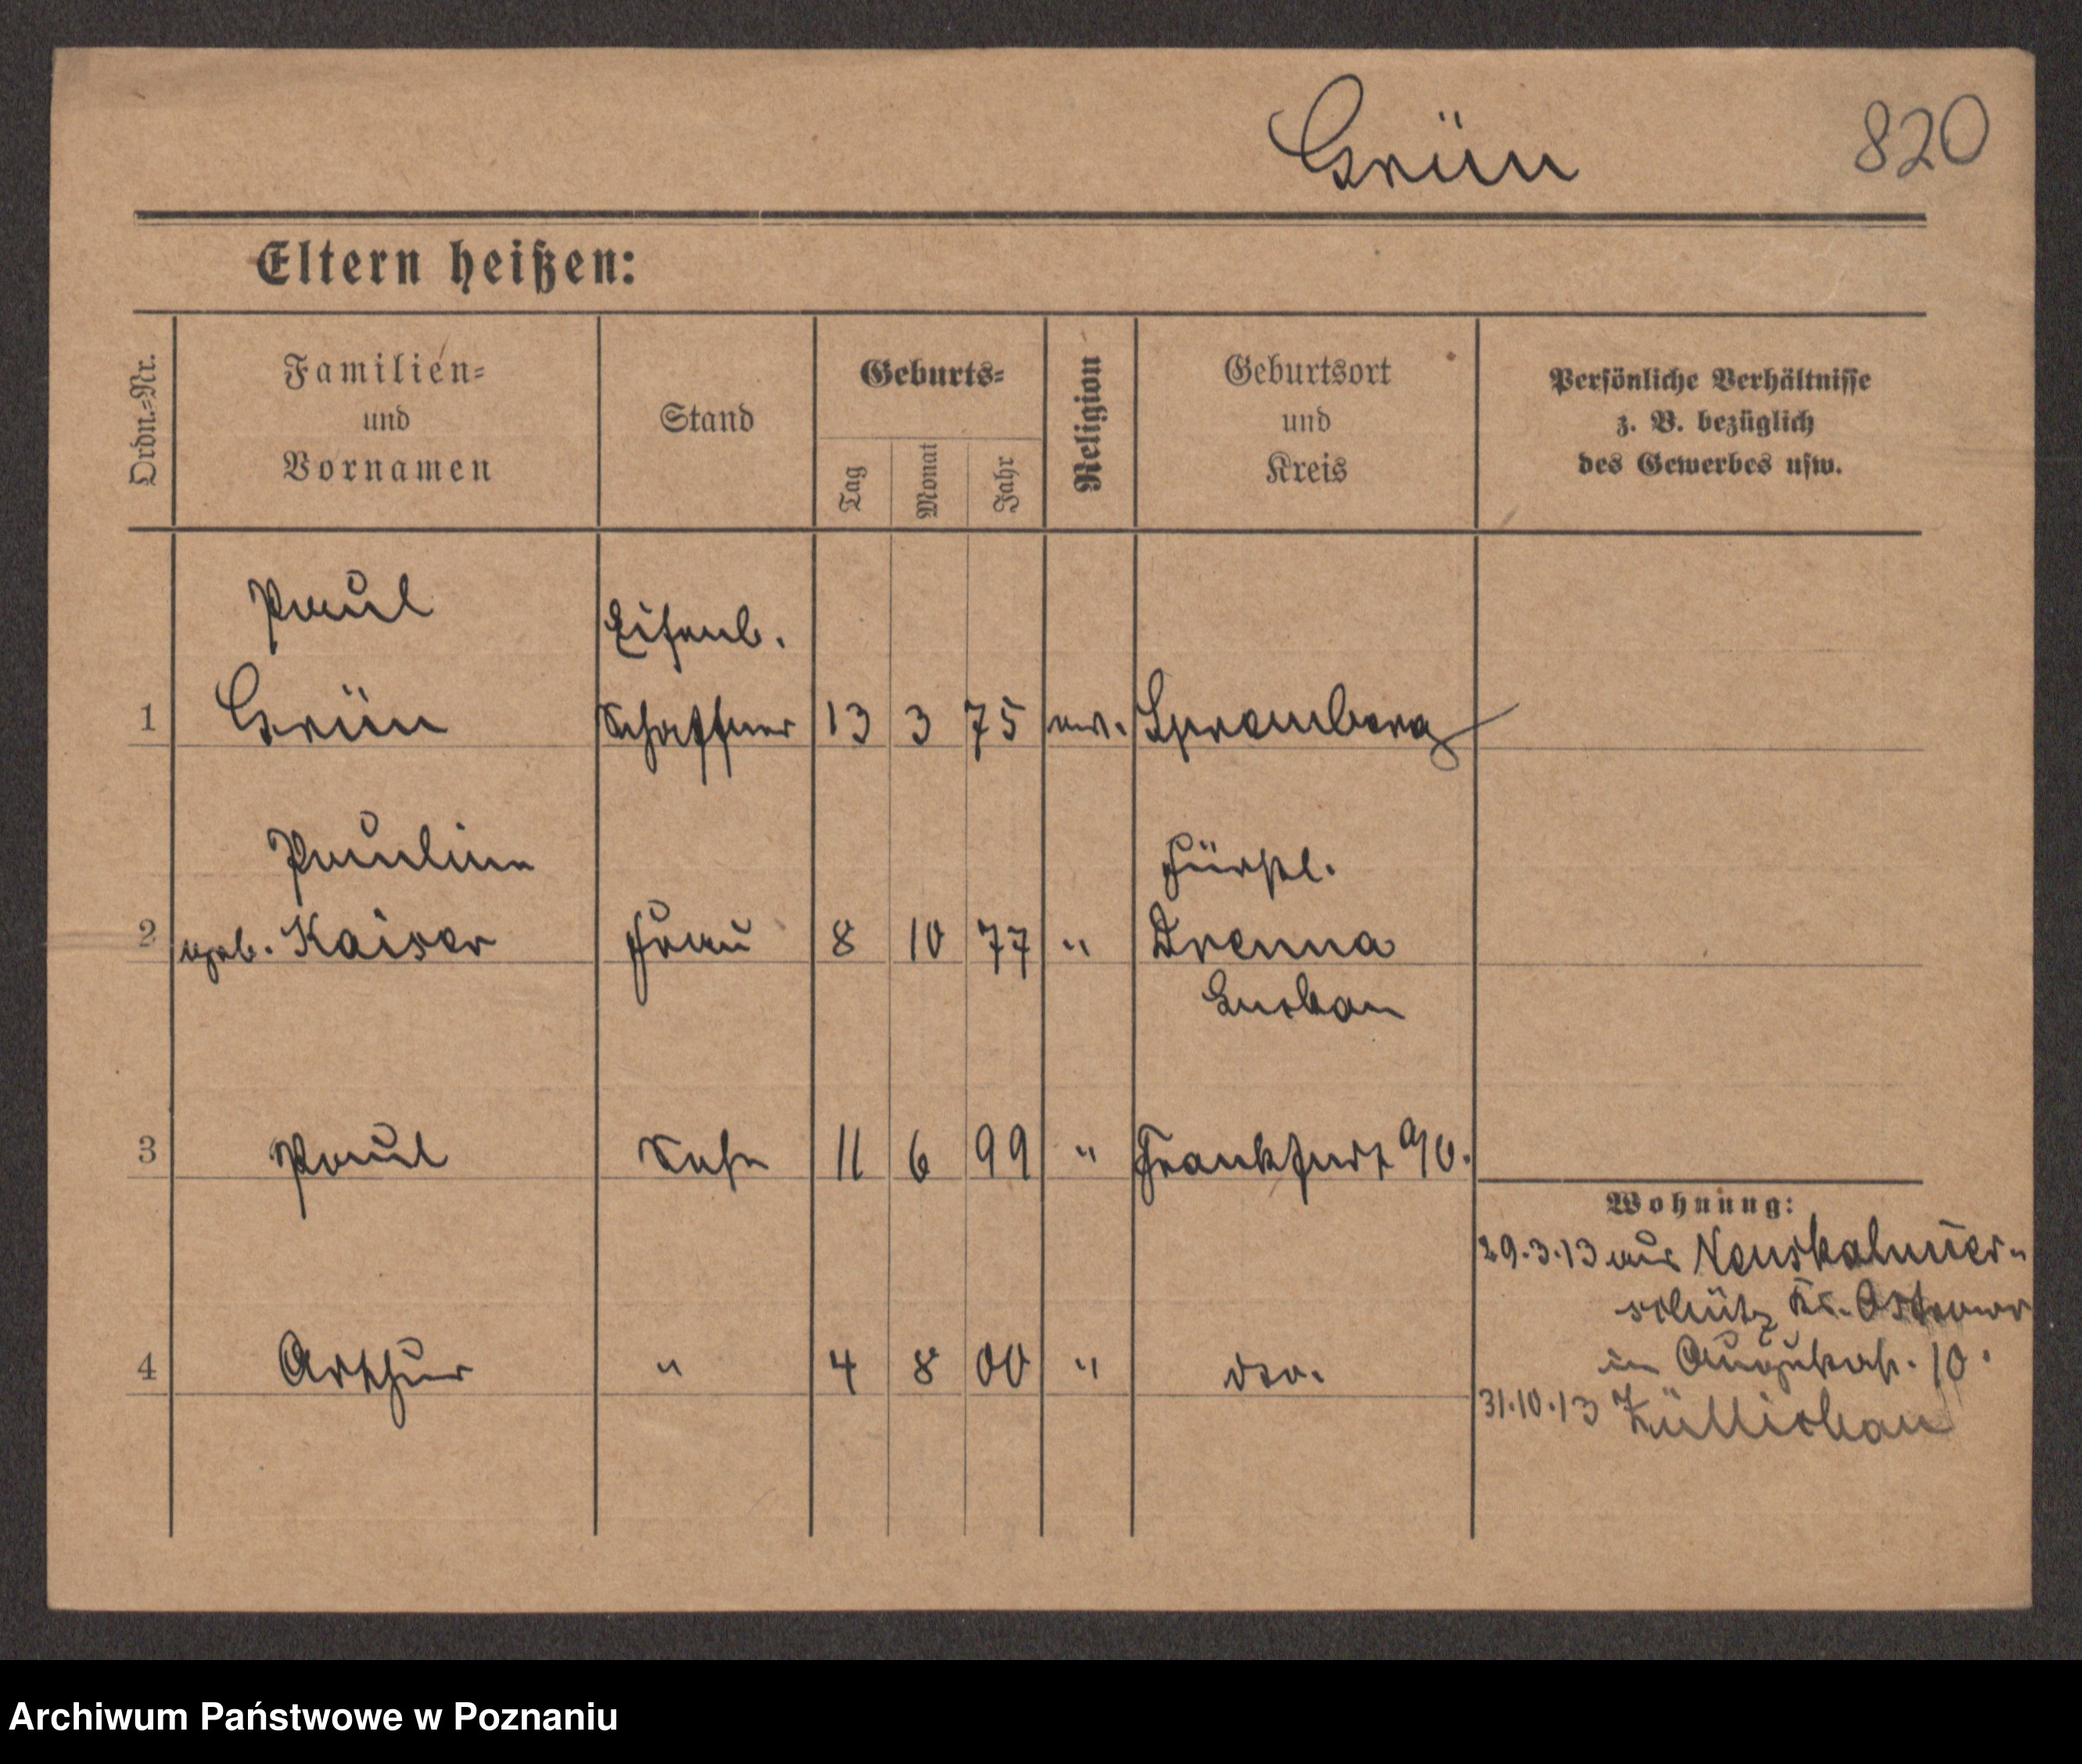 Grün 820
Eltern heißen:
Ordn.-Nr. Familien- und Vornamen Stand Geburts- Tag Monat Jahr Religion Geburtsort und Kreis Persönliche Verhältnisse z. B. bezüglich des Gewerbes usw.
Paul Eisenb.
1 Grün Schaffner 13 3 75 ev. Spremberg
Pauline Fürstl.
2 geb. Kaiser Frau 8 10 77 " Drenna
Luckau
3 Paul Sohn 11 6 99 " Frankfurt a/O.
Wohnung:
29.3.13 aus Neuskalmier-
schütz Kr. Ostrowo
in Augustastr. 10.
4 Arthur " 4 8 00 " dto.
31.10.13 Züllichau
Archiwum Państwowe w Poznaniu